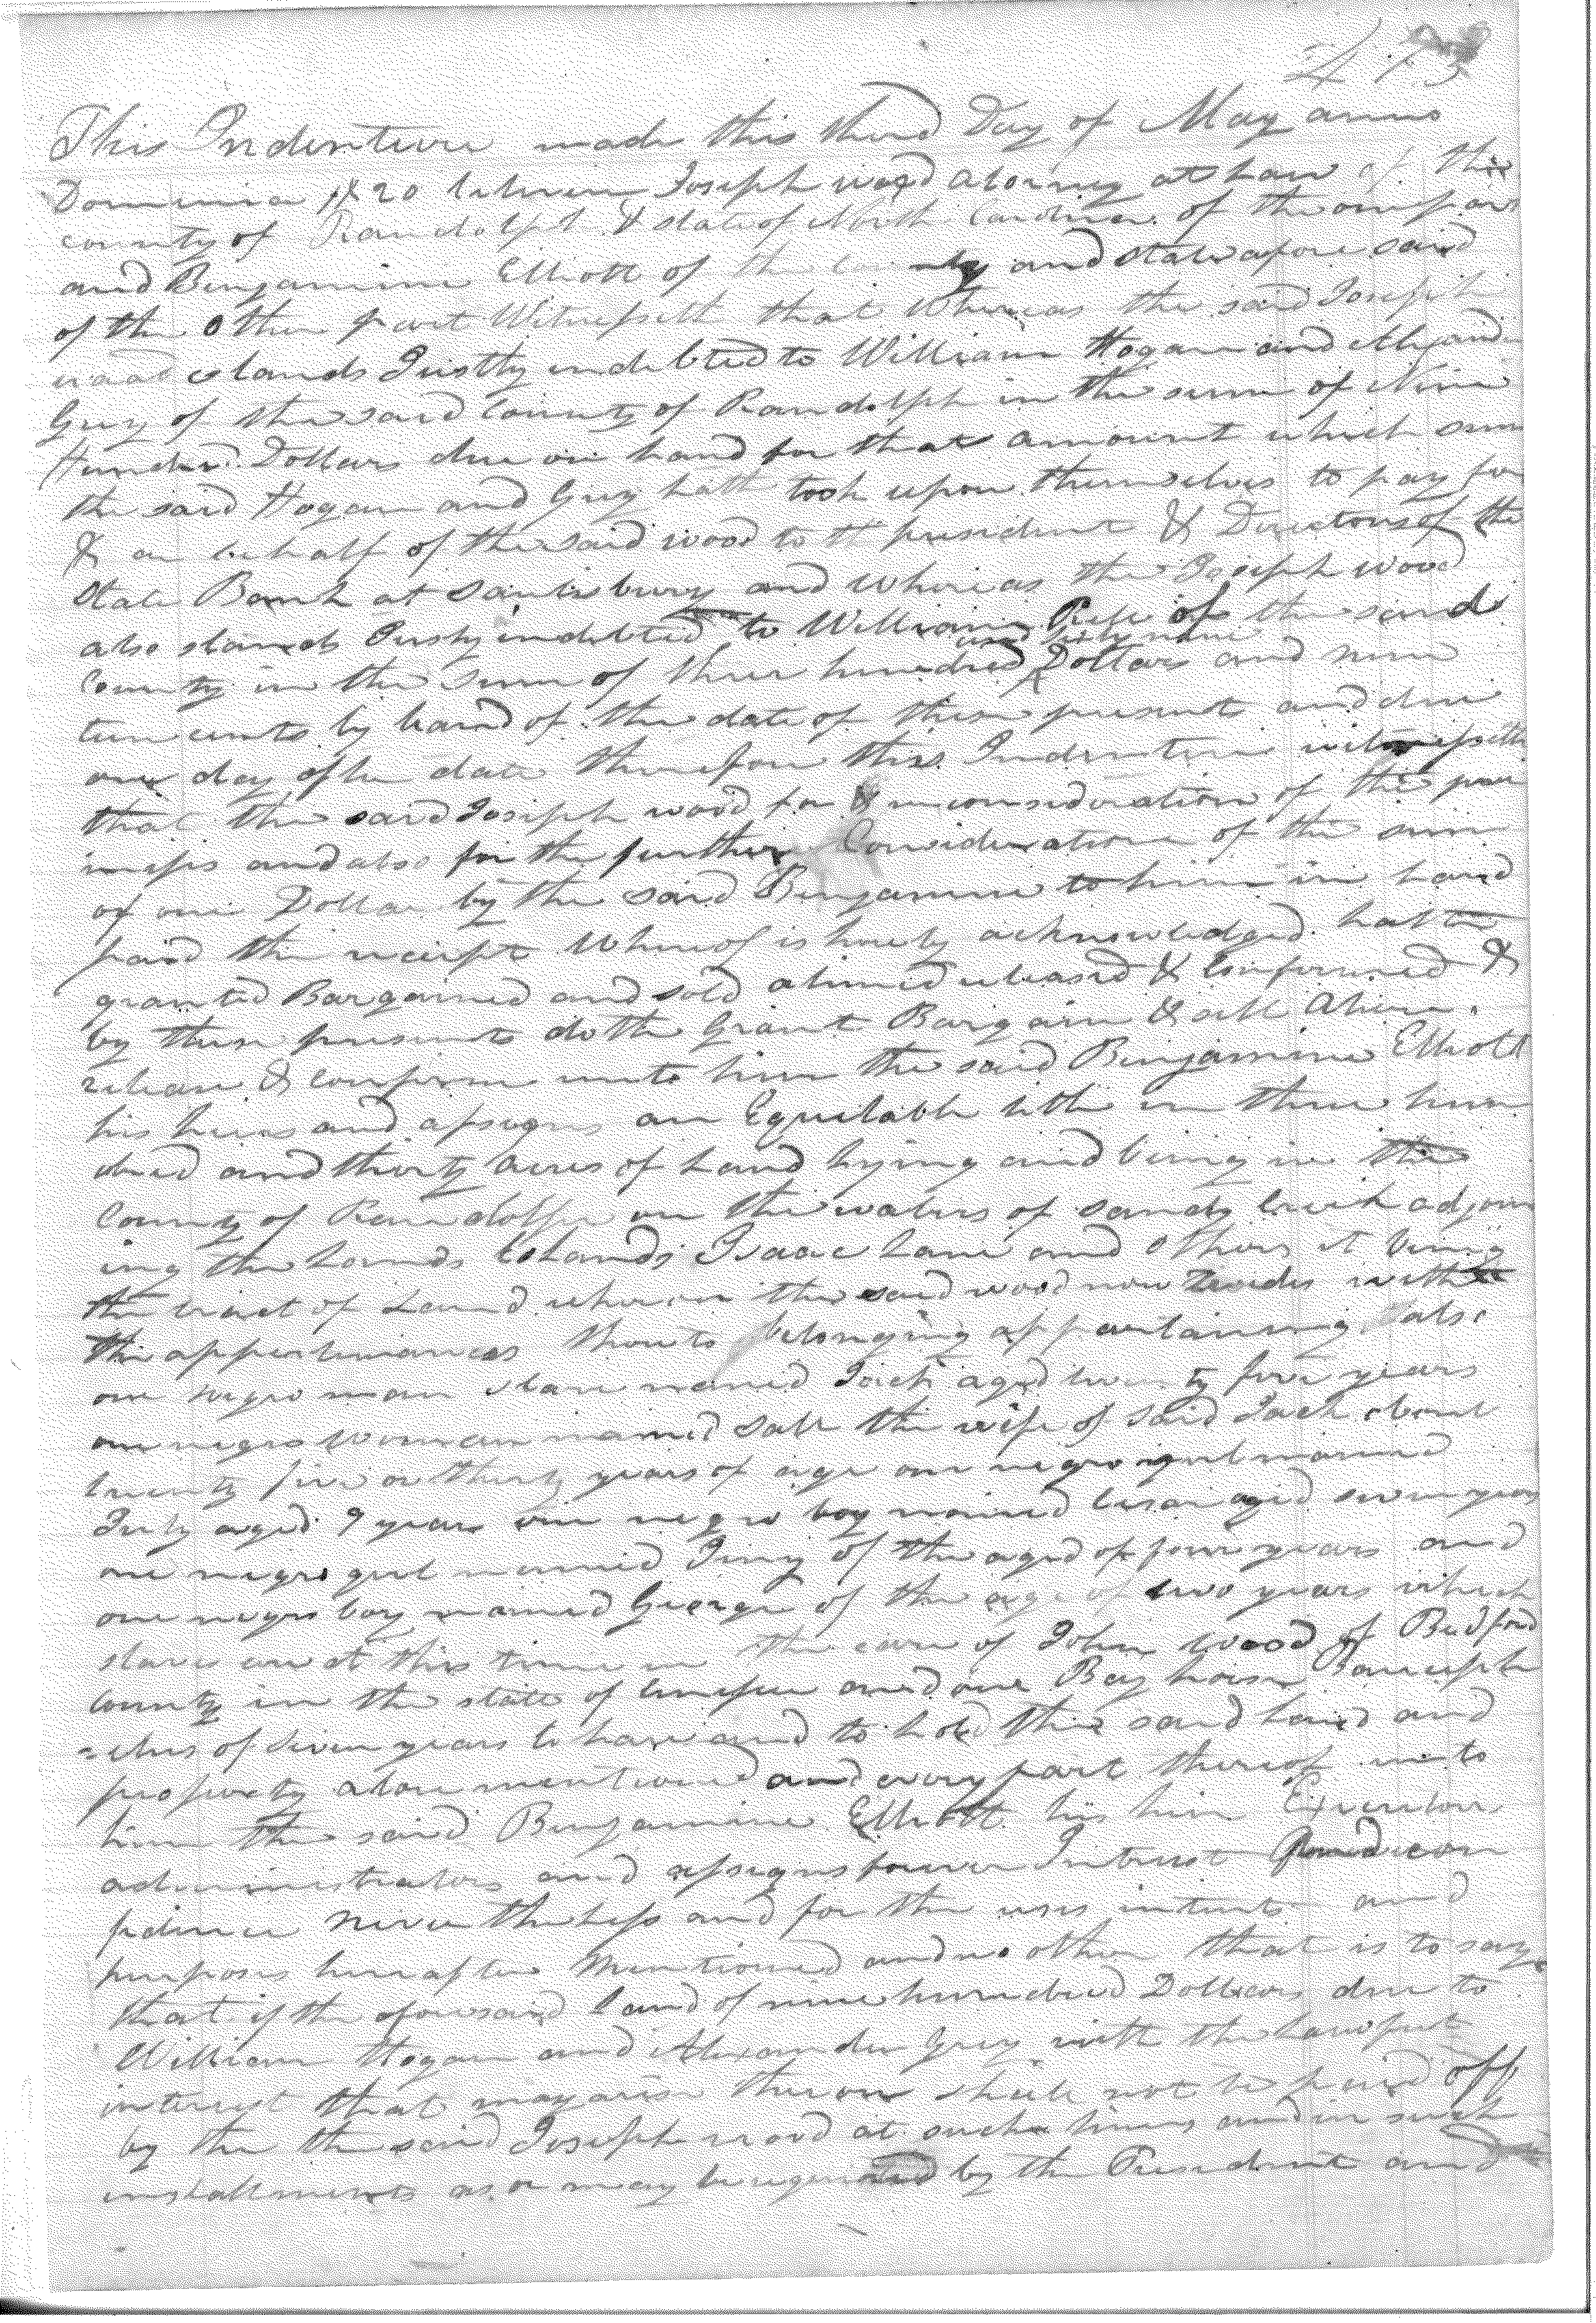 473
This Indenture made this third Day of May anno
Dominia 1820 between Joseph wood atorney at Law of the
county of Randolph & state of North Carolina of the one part
and Benjamine Elliott of the county and state afore said
of the other part Witnesseth that Whereas the said Joseph
wood stands Justly indebted to William Hogan and Alexander
Grey of the said County of Randolph in the sum of Nine
Hundred Dollars due on band for that amount which sum
the said Hogan and Grey hath took upon themselves to pay for
& on behalf of the said wood to the president & Directors of the
State Bank at and Whereas the Joseph wood
also stands Justly indebted to William of the said
County in the sum of three hundred and sixty nine Dollars and nine
teen cents by band of the date of these presents and due
one day after date therefore this Indenture witnesseth
that the said Joseph wood for & in consideration of the pre
mises and also for the further Consideration of the sum
of one Dollar by the said Benjamine to him in hand
paid the receipt Whereof is hereby acknowledged hath
granted Bargained and sold aliened released & Confirmed &
by these presents doth Grant Bargain & sell Alien
release & confirm unto him the said Benjamine Elliott
his heirs and assigns an Equitable title in three hun
dred and thirty acres of Land lying and being in the
County of Randolph on the waters of sandy Creek adjoin
ing the Lands Isaac Lane and others it being
the tract of Land whereon the said wood now resides with
the appertinances thereto belonging appertaining also
one negro man slave named Jack aged twenty five years
one negro woman named Sall the wife of said Jack about
twenty five or thirty years of age one negro girl named
July aged 9 years one negro boy named aged seven years
one negro girl named Jiny of the aged of four years and
one negro boy named George of the age of two years which
slaves are at this time in the care of John Wood of Bedford
County in the state of and one Bay horse
of seven years to have and to hold the said Land and
property above mentioned and every part thereof unto
him the said Benjamine Elliott his heirs Executors
administrators and assigns forever Intrust and con
fidence nevertheless and for the uses intents and
purposes hereafter mentioned and no other that is to say
that if the aforesaid band of nine hundred Dollars due to
William Hogan and Alexander Grey with the Lawful
interest that may arise thereon shall not be paid off
by the the said Joseph wood at such times and in such
installments as may be required by the President and